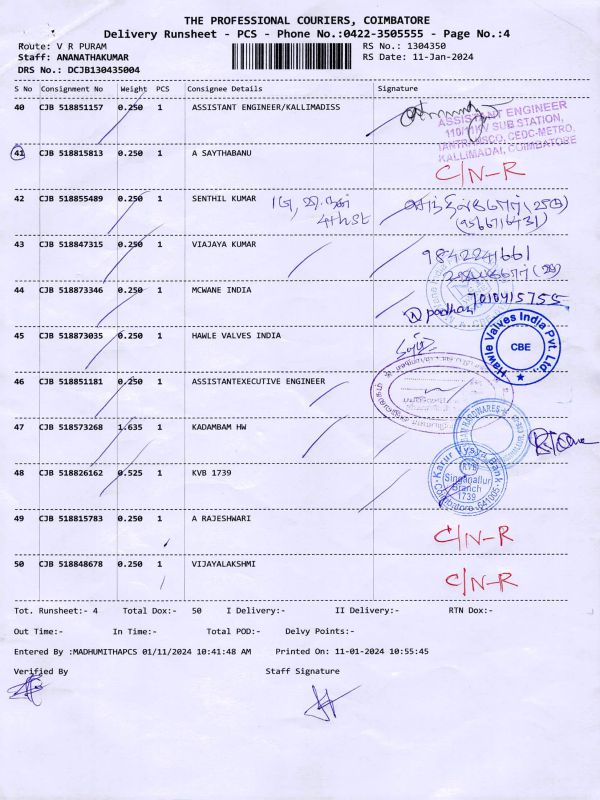 THE PROFESSIONAL COURIERS, COIMBATORE
Delivery Runsheet - PCS - Phone No.:0422-3505555 - Page No.:4
Route: V R PURAM
RS No.: 1304350
Staff: ANANATHAKUMAR
RS Date: 11-Jan-2024
DRS No.: DCJB130435004
S No Consignment No Weight PCS Consignee Details Signature
40 CJB 518851157 0.250 1 ASSISTANT ENGINEER/KALLIMADISS
ASSISTANT ENGINEER
110/11KV SUB STATION,
TANTRANSCO, CEDC-METRO,
KALLIMADAI, COIMBATORE
41 CJB 518815813 0.250 1 A SAYTHABANU C/N-R
42 CJB 518855489 0.250 1 SENTHIL KUMAR
4th st
(9566716431)
43 CJB 518847315 0.250 1 VIAJAYA KUMAR 9842241661
44 CJB 518873346 0.250 1 MCWANE INDIA 7010415755
45 CJB 518873035 0.250 1 HAWLE VALVES INDIA
Hawle Valves India Pvt. Ltd.
CBE
46 CJB 518851181 0.250 1 ASSISTANTEXECUTIVE ENGINEER
47 CJB 518573268 1.635 1 KADAMBAM HW
48 CJB 518826162 0.525 1 KVB 1739
Karur Vysya Bank
KVB
Singanallur
Branch
1739
Coimbatore 641005
49 CJB 518815783 0.250 1 A RAJESHWARI C/N-R
50 CJB 518848678 0.250 1 VIJAYALAKSHMI C/N-R
Tot. Runsheet:- 4 Total Dox:- 50 I Delivery:- II Delivery:- RTN Dox:-
Out Time:- In Time:- Total POD:- Delvy Points:-
Entered By :MADHUMITHAPCS 01/11/2024 10:41:48 AM Printed On: 11-01-2024 10:55:45
Verified By Staff Signature